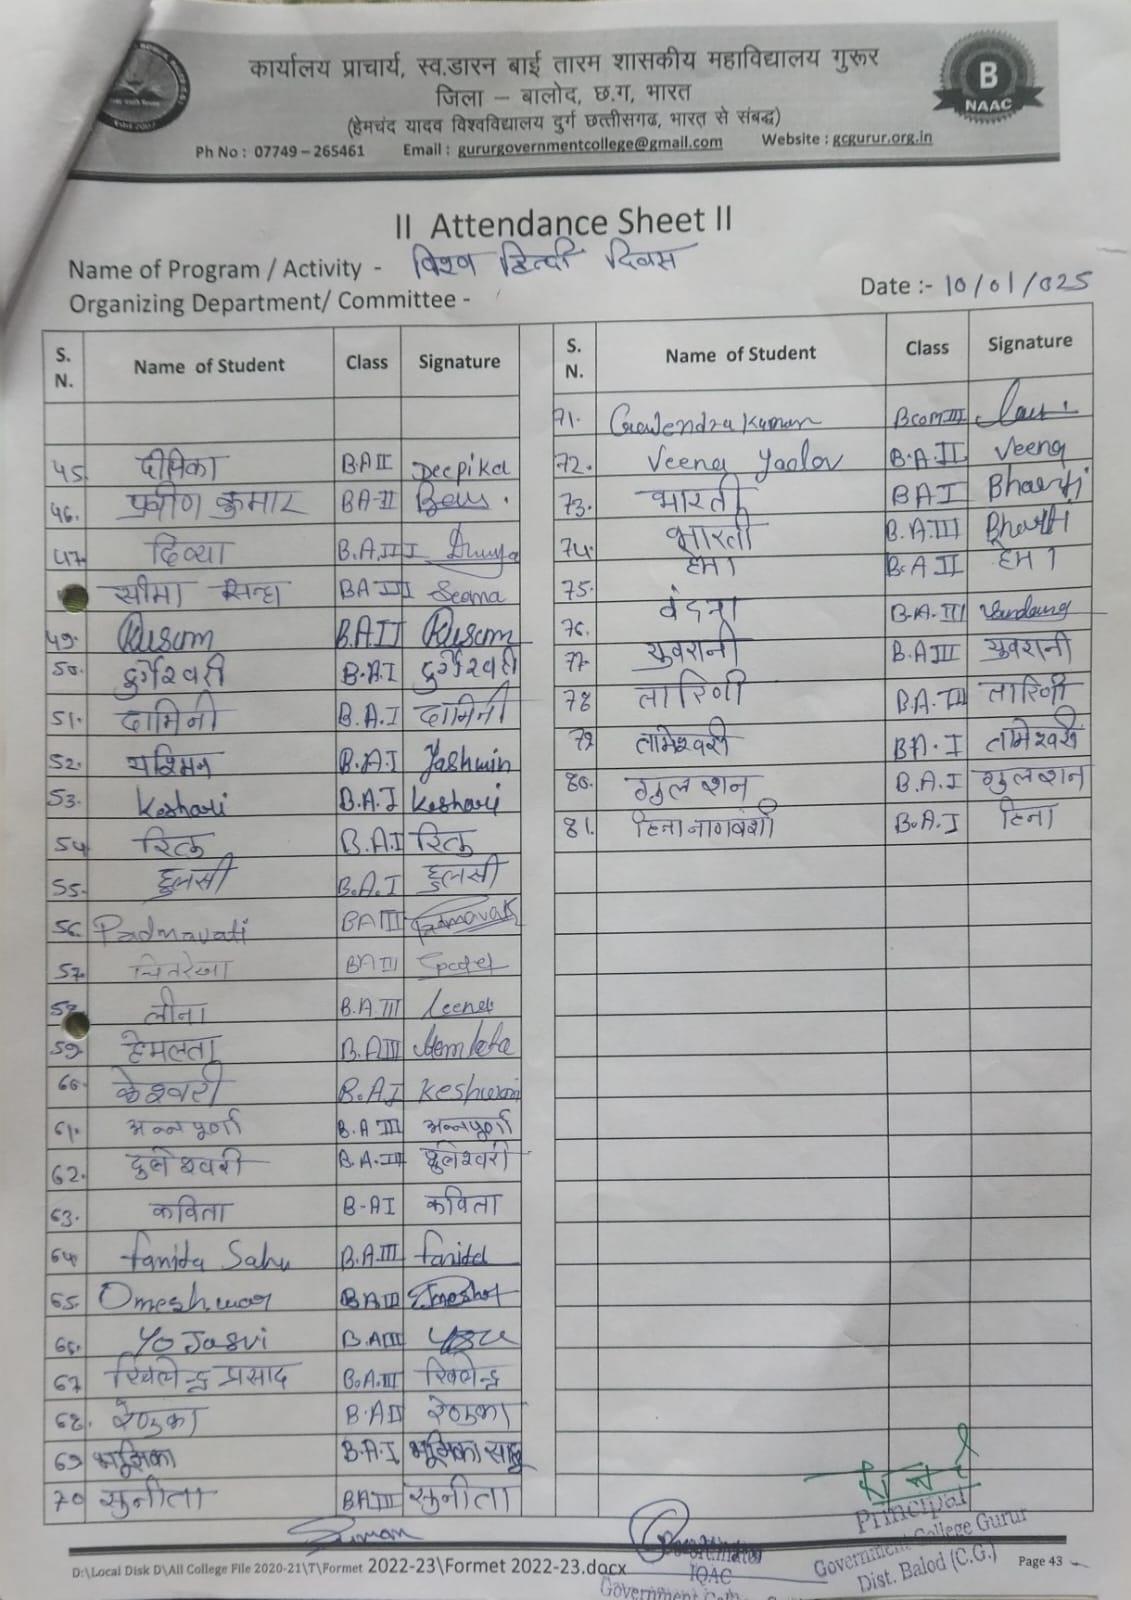 कार्यालय प्राचार्य, स्व.डारन बाई तारम शासकीय महाविद्यालय गुरूर
जिला – बालोद, छ.ग, भारत
(हेमचंद यादव विश्वविद्यालय दुर्ग छत्तीसगढ, भारत से संबद्ध)
Ph No : 07749 – 265461 Email : gururgovernmentcollege@gmail.com Website : gcgurur.org.in
B
NAAC
II Attendance Sheet II
Name of Program / Activity - विश्व हिन्दी दिवस
Organizing Department/ Committee -
Date :- 10/01/025
S. N. Name of Student Class Signature
45. दीपिका B.A II Deepika
46. प्रवीण कुमार BA-II
47. दिव्या B.A.III
सीमा सिन्हा BA III Seema
49. Kusum B.A II Kusum
50. दुर्गेश्वरी B.A.I दुर्गेश्वरी
51. दामिनी B.A.I दामिनी
52. यश्मिन B.A.I Yashmin
53. Keshari B.A.I Keshari
54. रितु B.A.I रितु
55. हुलसी B.A.I हुलसी
56. Padmavati BA III Padmavati
57. चितरेखा BA III
58. लीना B.A.III Leena
59. हेमलता B.A III Hemlata
60. केश्वरी B.A I Keshwari
61. अन्नपूर्णा B.A III अन्नपूर्णा
62. दुलेश्वरी B.A.III दुलेश्वरी
63. कविता B-A I कविता
64. Tanida Sahu B.A.III
65. Omeshwar BA III
66. Yo Jasvi B.A III
67. खिलेन्द्र प्रसाद B.A.III खिलेन्द्र
68. रेणुका B.A II रेणुका
69. भूमिका B.A.I भूमिका साहू
70 सुनीता BA III सुनीता
S. N. Name of Student Class Signature
71. Gajendra Kumar BCom III
72. Veena Yadav B.A.II Veena
73. भारती BA I Bharti
74. भारती B.A.III Bharti
75. हेमा B.A II हेमा
76. वंदना B.A.III Vandana
77. युवरानी B.A III युवरानी
78 तारिणी B.A. III तारिणी
79 तामेश्वरी BA.I तामेश्वरी
80. गुलशन B.A.I गुलशन
81. हिना नागवंशी B.A.I हिना
Suman
Coordinator
IQAC
Principal
Government College Gurur
Dist. Balod (C.G.)
D:\Local Disk D\All College File 2020-21\T\Formet 2022-23\Formet 2022-23.docx
Page 43